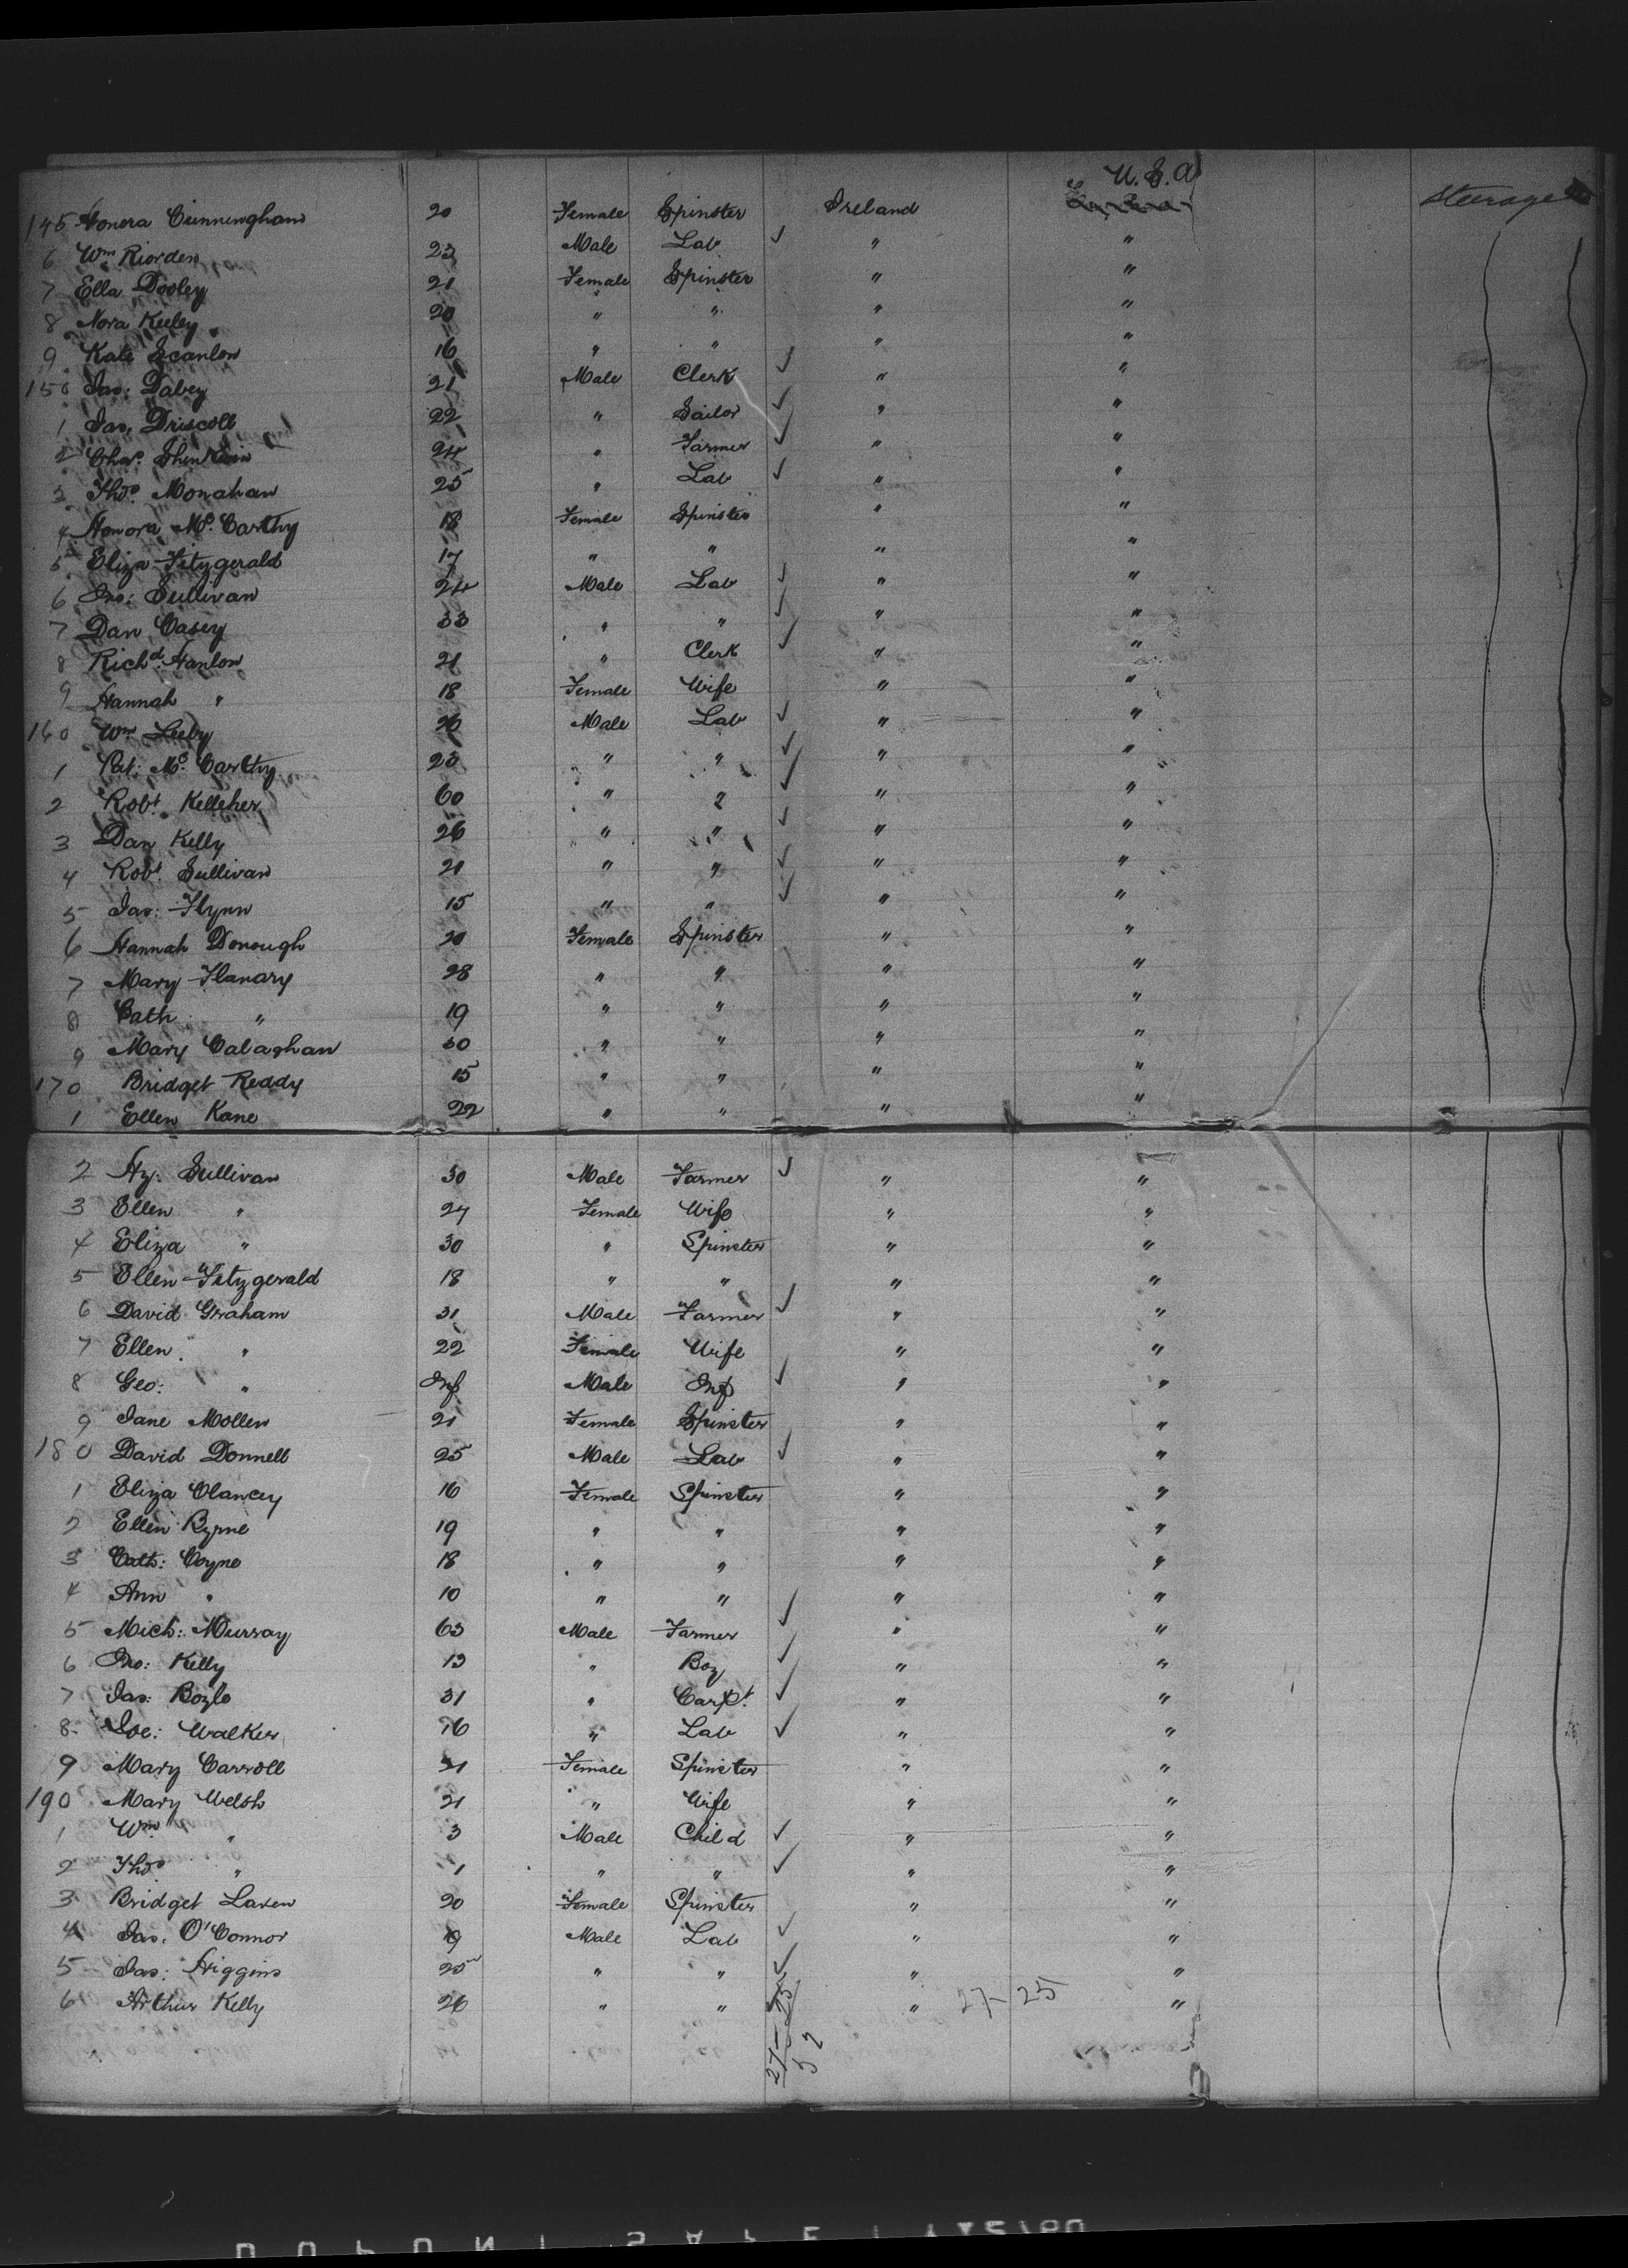 U.S.A
145 Honora Cunningham 20 Female Spinster Ireland Steerage
6 Wm Riorden 23 Male Lab ✓ " "
7 Ella Dooley 21 Female Spinster " "
8 Nora Keeley 20 " " " "
9 Kate Scanlon 16 " " " "
150 Jas: Dabey 21 Male Clerk ✓ " "
1 Jas. Driscoll 22 " Sailor ✓ " "
2 Chas. 24 " Farmer ✓ " "
3 Thos. Monahan 25 " Lab ✓ " "
4 Honora McCarthy 18 Female Spinster " "
5 Eliza Fitzgerald 17 " " " "
6 Jno: Sullivan 24 Male Lab ✓ " "
7 Dan Casey 33 " " ✓ " "
8 Richd. Hanlon 21 " Clerk ✓ " "
9 Hannah " 18 Female Wife " "
160 Wm Leeby 26 Male Lab ✓ " "
1 Pat: McCarthy 23 " " ✓ " "
2 Robt. Kelleher 60 " " ✓ " "
3 Dan Kelly 26 " " ✓ " "
4 Robt. Sullivan 21 " " ✓ " "
5 Jas: Flynn 15 " " ✓ " "
6 Hannah Donough 20 Female Spinster " "
7 Mary Flanary 28 " " " "
8 Cath " 19 " " " "
9 Mary Calaghan 30 " " " "
170 Bridget Reddy 15 " " " "
1 Ellen Kane 22 " " " "
2 Hy. Sullivan 30 Male Farmer ✓ " "
3 Ellen " 24 Female Wife " "
4 Eliza " 30 " Spinster " "
5 Ellen Fitzgerald 18 " " " "
6 David Graham 31 Male Farmer ✓ " "
7 Ellen " 22 Female Wife " "
8 Geo: " Inf Male Inf ✓ " "
9 Jane Mollen 21 Female Spinster " "
180 David Donnell 25 Male Lab ✓ " "
1 Eliza Clancey 16 Female Spinster " "
2 Ellen Byrne 19 " " " "
3 Cath: Coyne 18 " " " "
4 Ann " 10 " " " "
5 Mich: Murray 63 Male Farmer ✓ " "
6 Jno: Kelly 13 " Boy ✓ " "
7 Jas: Boyle 31 " Carpt. ✓ " "
8 Joe: Walker 16 " Lab ✓ " "
9 Mary Carroll 21 Female Spinster " "
190 Mary Welsh 21 " Wife " "
1 Wm " 3 Male Child ✓ " "
2 Thos " 1 " " ✓ " "
3 Bridget Laven 20 Female Spinster " "
4 Jas. O'Connor 19 Male Lab ✓ " "
5 Jas: Higgins 25 " " ✓ " "
6 Arthur Kelly 26 " " ✓ " 27-25 "
27-25
52
DUPONT SAFETY